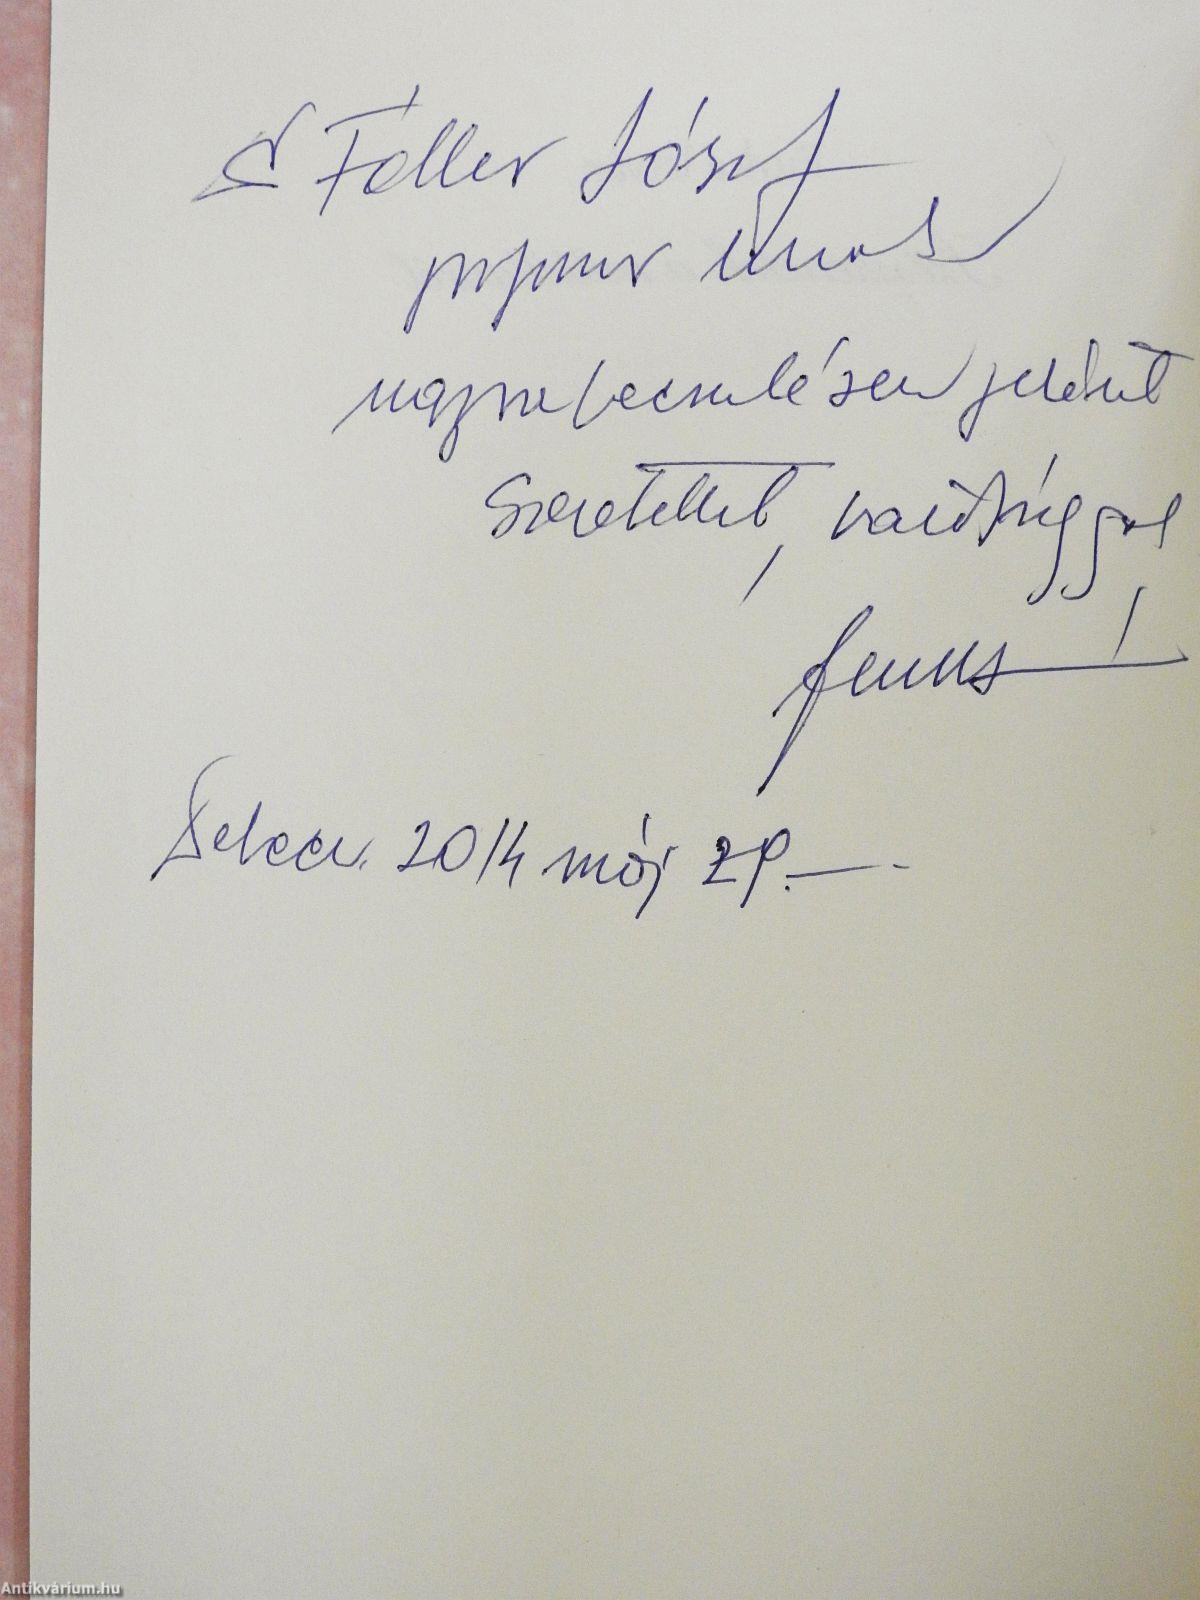 Dr Fáller József
professzor úrnak
nagyrabecsülésem jeléül
Szeretettel, barátsággal
2014 máj 29.
Antikvárium.hu